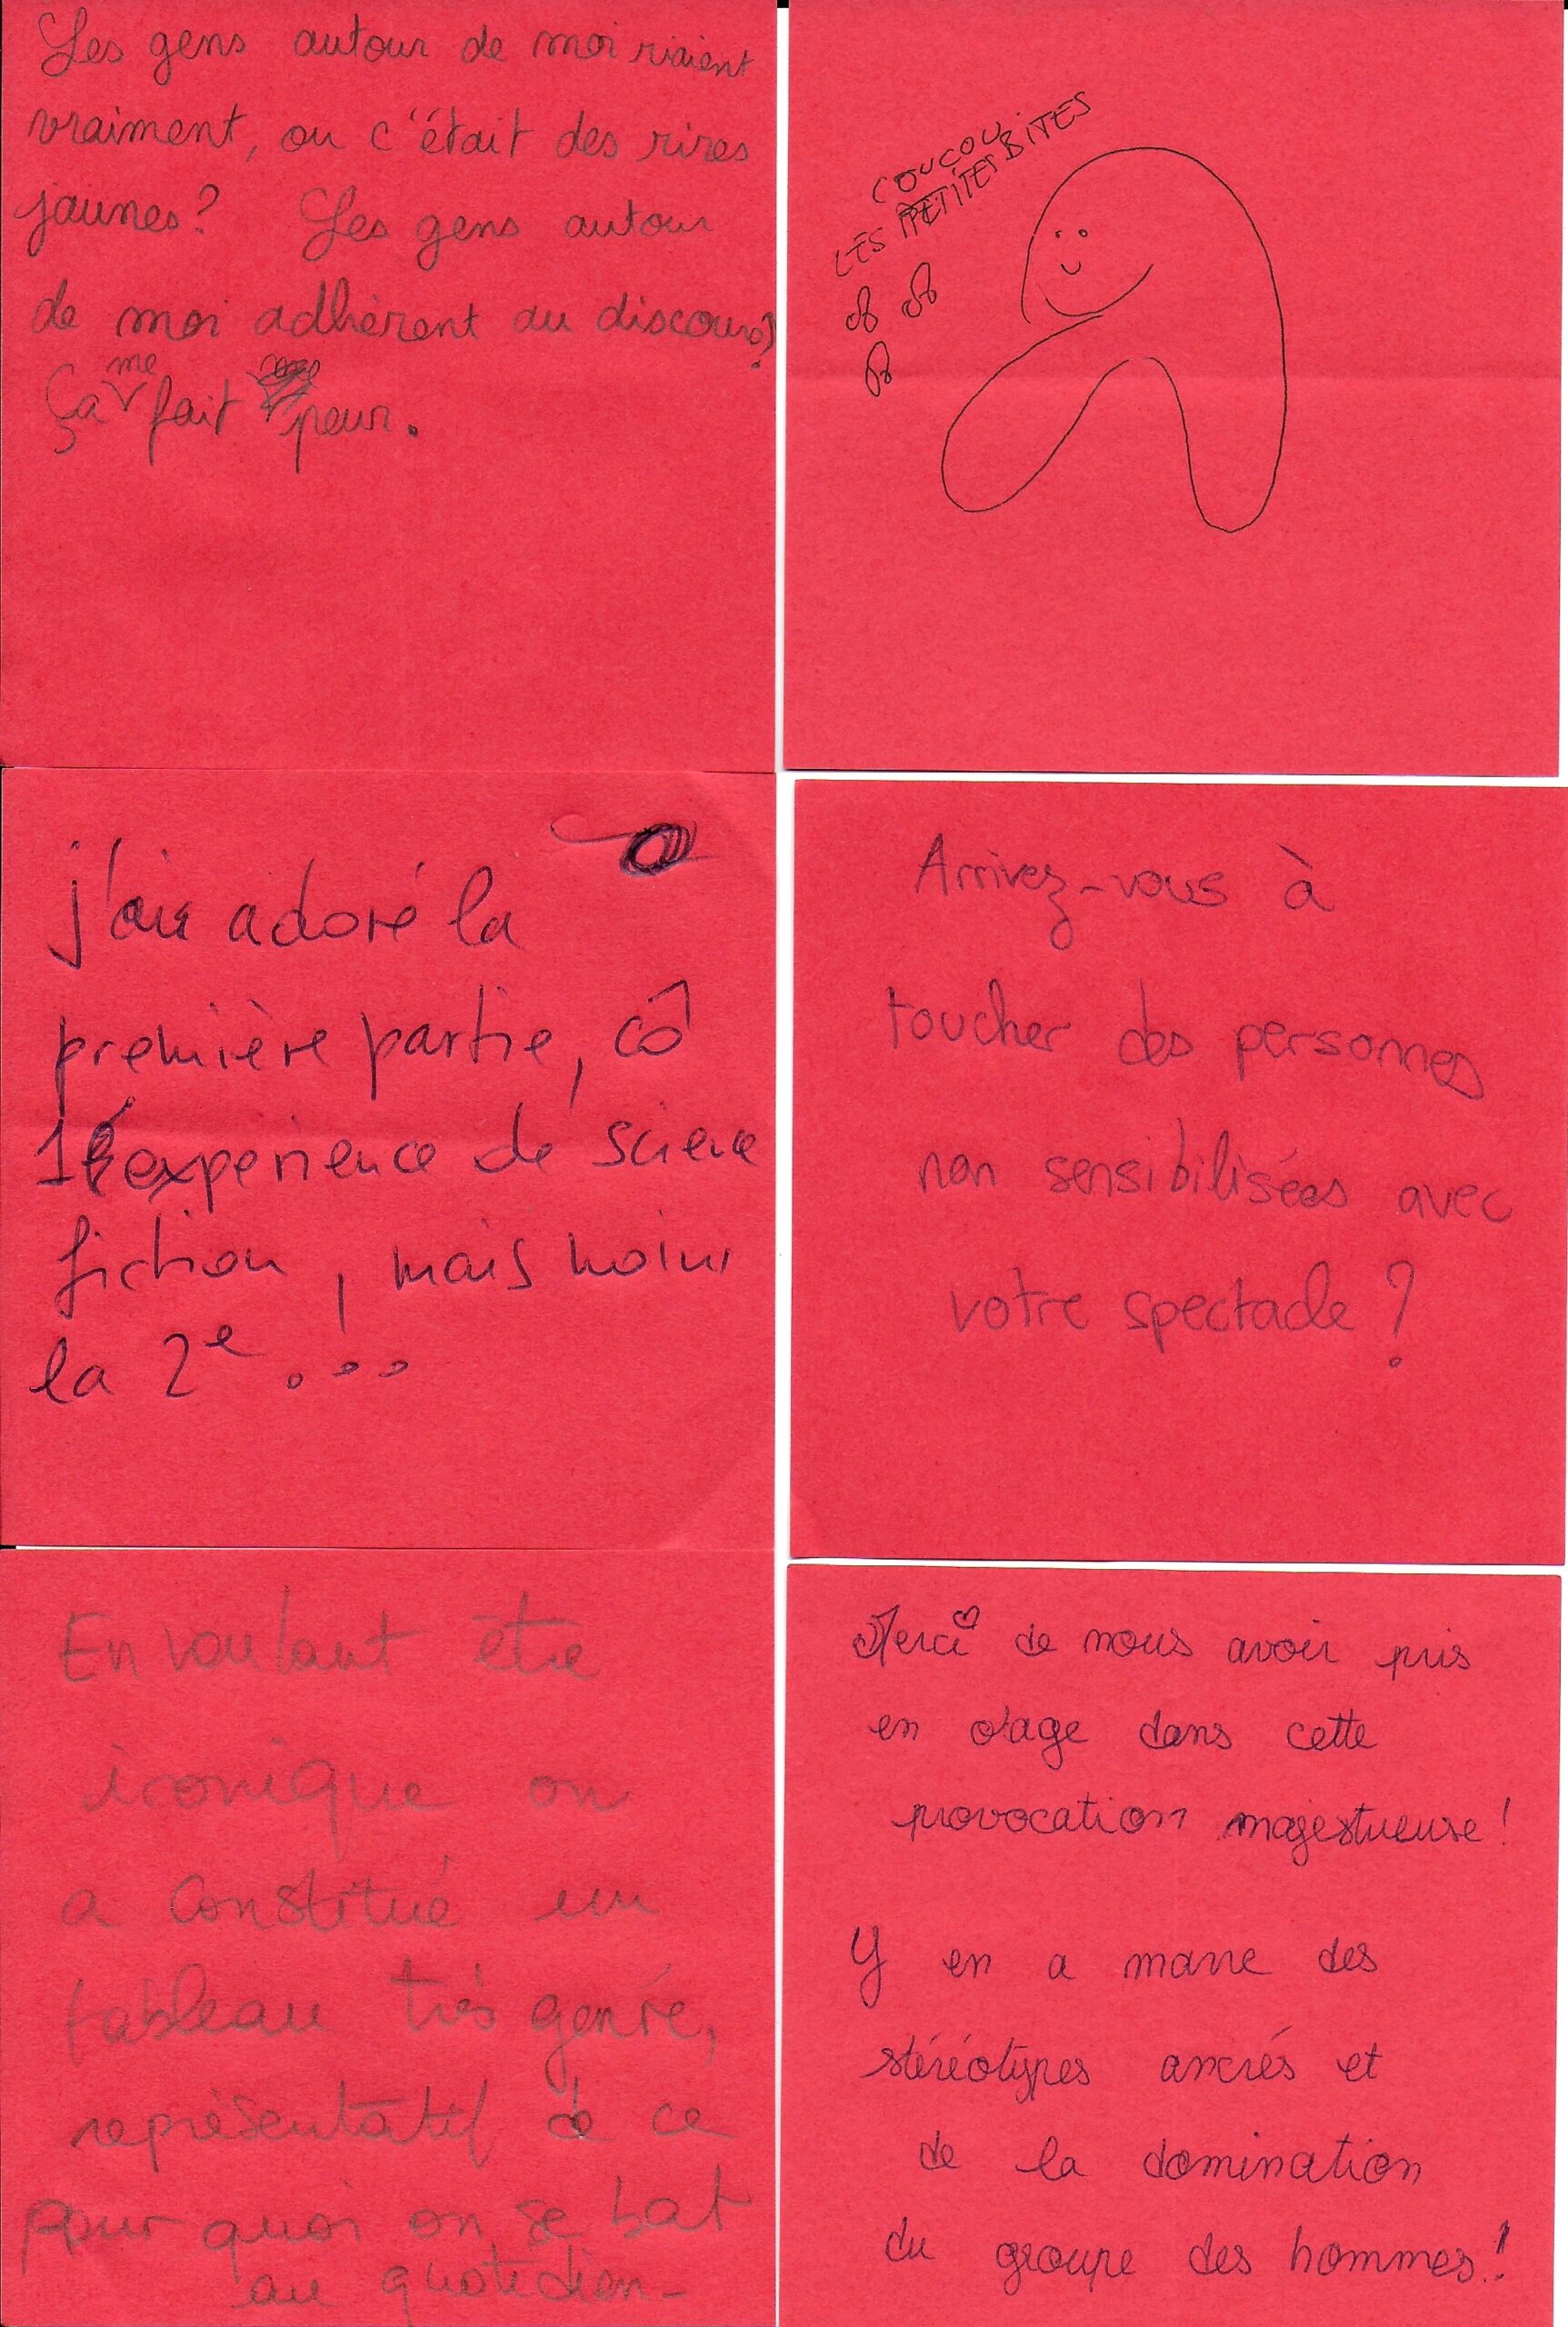 Les gens autour de moi riaient
vraiment, ou c'était des rires
jaunes? Les gens autour
de moi adhèrent au discours?
Ça me fait peur.
COUCOU
LES PETITES BITES
j'ai adoré la
première partie, cô
1 expérience de science
fiction, mais moins
la 2e ...
Arrivez-vous à
toucher des personnes
non sensibilisées avec
votre spectacle ?
En voulant être
ironique on
a constitué un
tableau très genré,
représentatif de ce
pour quoi on se bat
au quotidien-
Merci de nous avoir pris
en otage dans cette
provocation majestueuse!
Y en a marre des
stéréotypes ancrés et
de la domination
du groupe des hommes!